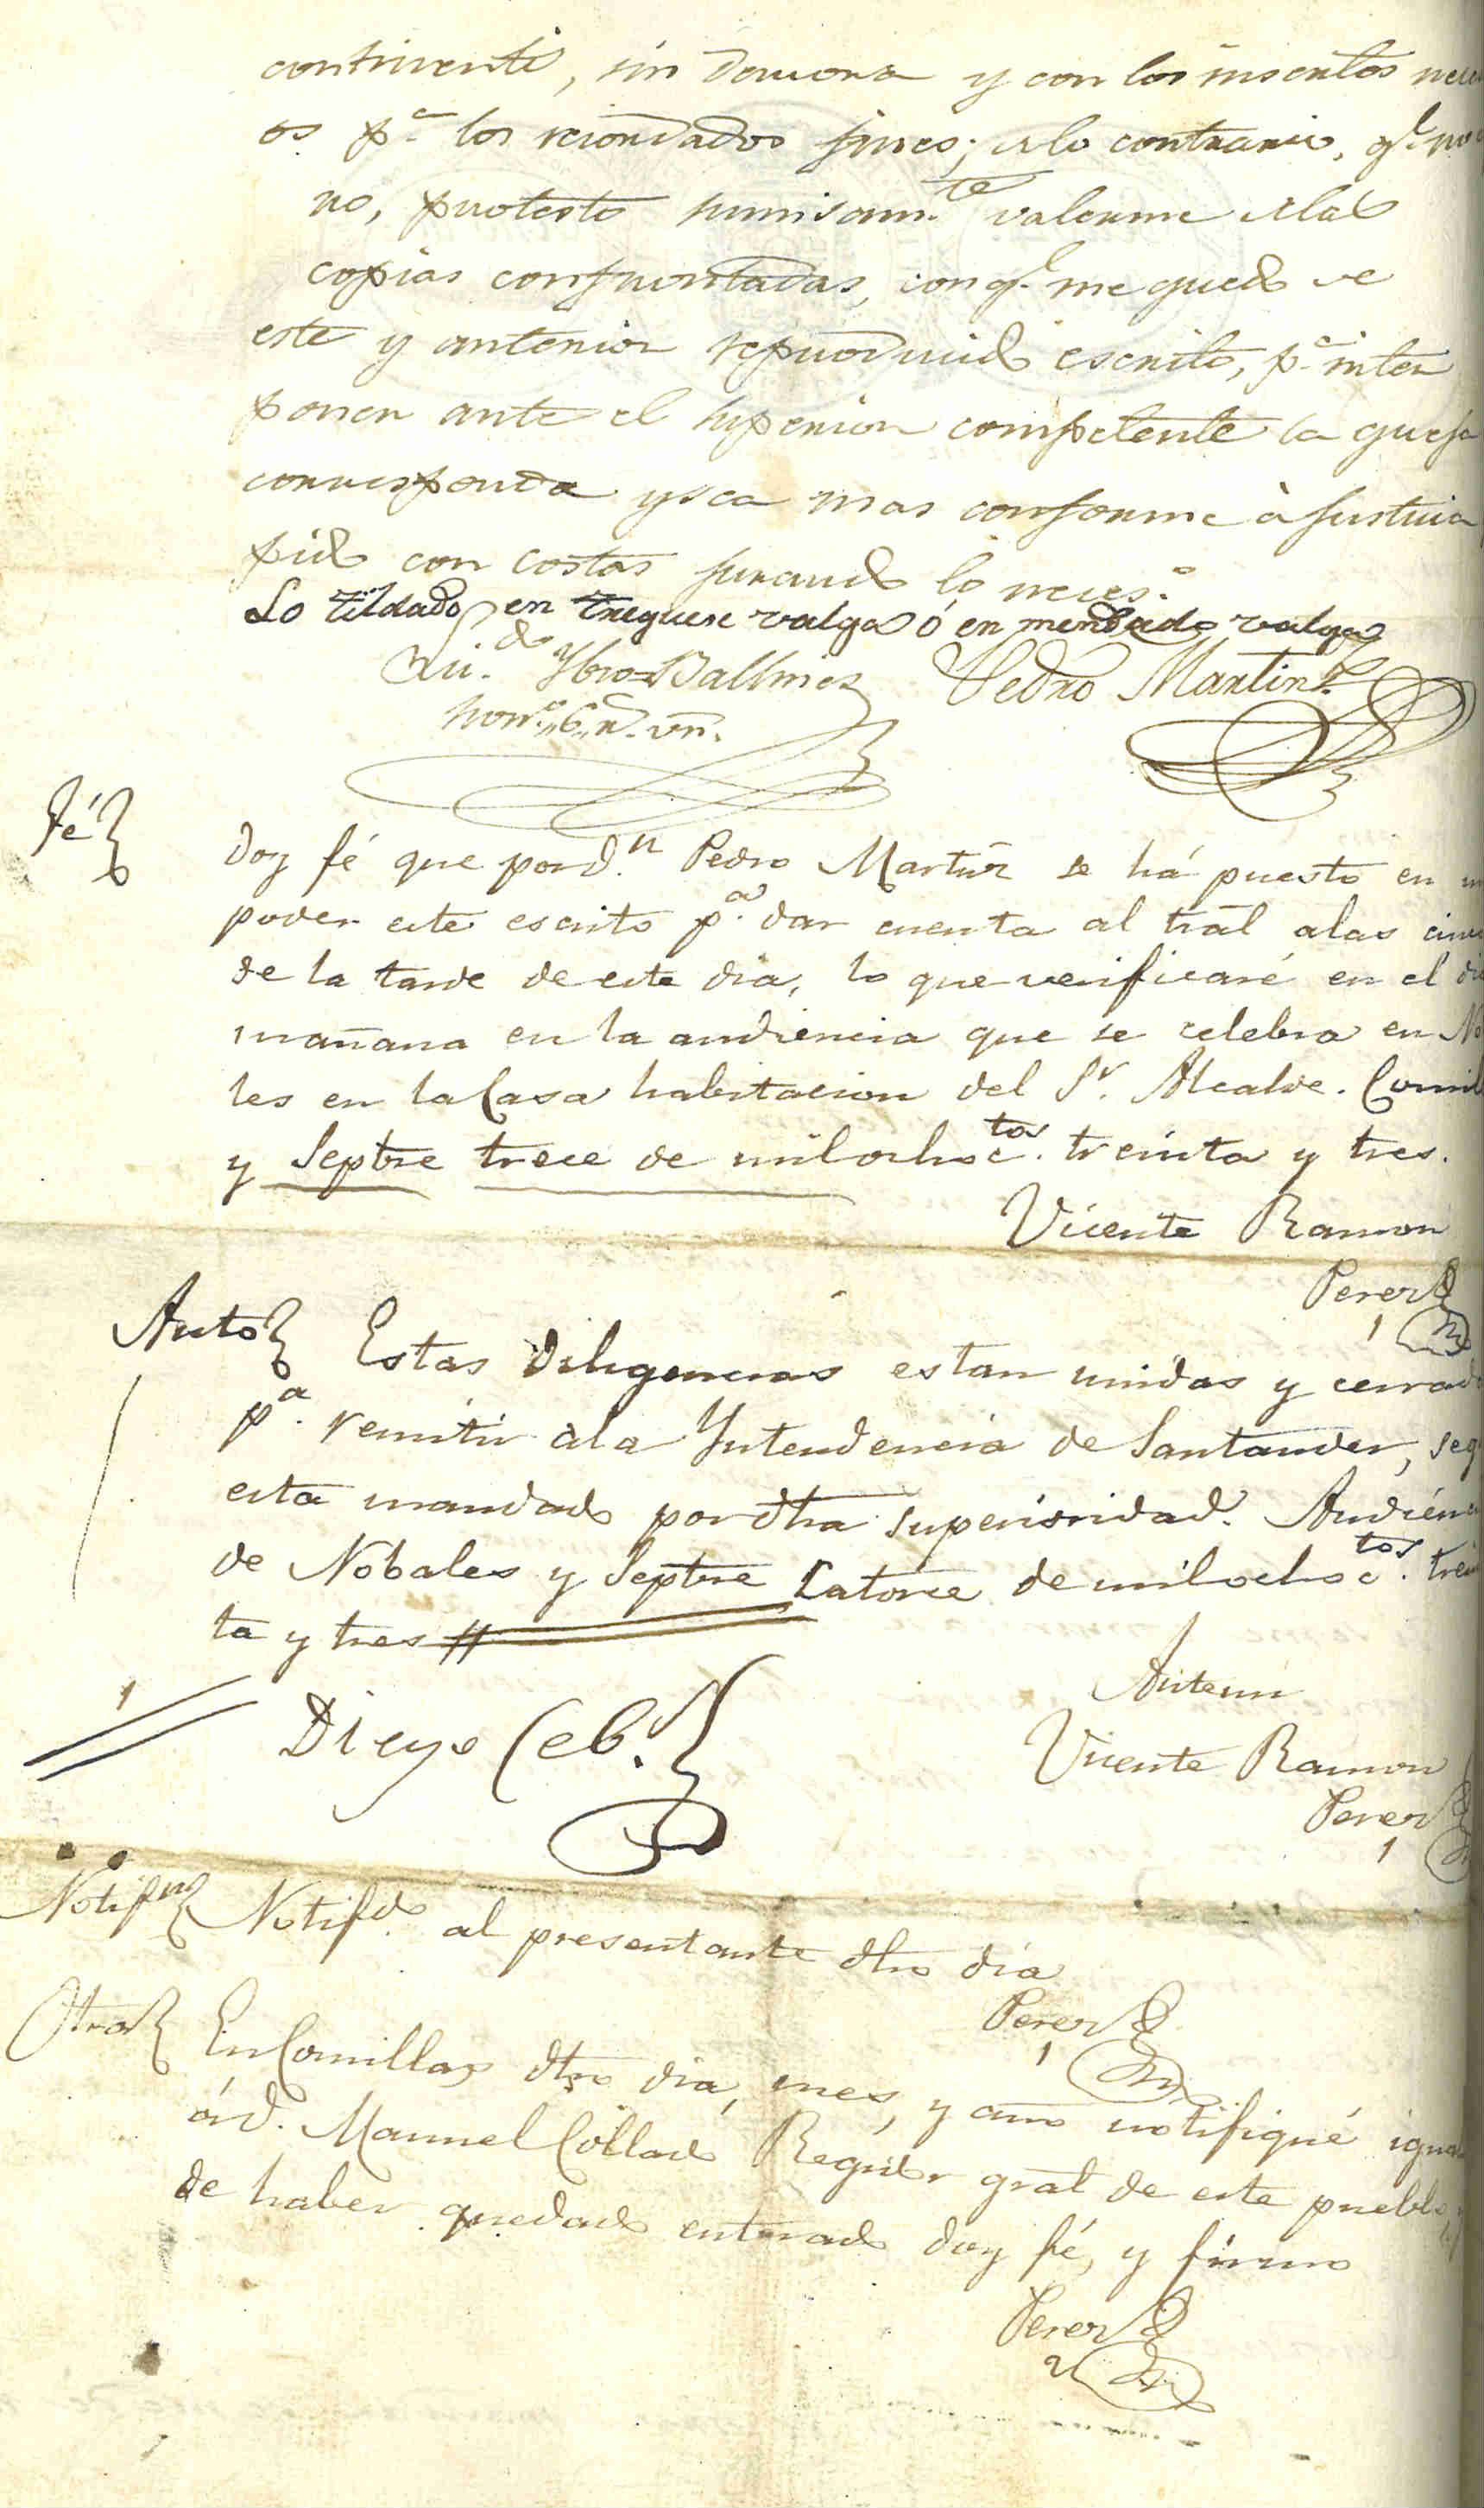 continenti, sin demora y con los insertos nece
os pª los recordados fines; delo contrario, q.e no
no, protesto sumisam.te valerme delas
copias confrontadas, con q.e me quedo de
este y anterior reproducido escrito, pª inter
poner ante el superior competente la queja
corresponda y sea mas conforme à Justicia
pido con costas jurando lo neces.º
Lo tildado, en treguese valga ó en mendado valga
Lic.do Ybro=Ballines Pedro Martinz
hon.s 6 r.s vn.
Fé
Doy fé que por d.n Pedro Martinz se há puesto en m
poder este escrito p.a dar cuenta al tral alas cinco
de la tarde de este dia, lo que verificaré en el di
mañana en la audiencia que se celebra en No
les en la Casa habitacion del S.r Alcalde. Comill
y Septre trece de mil ochoc.tos treinta y tres.
Vicente Ramon
Perez
Auto Estas diligencias estan unidas y cerrad
p.a remitir ala Yntendencia de Santander, seg
esta mandado por dha superioridad. Audien
de Nobales y Septre Catorce de mil ochoc.tos trein
ta y tres
Antemi
Diego Ceb.
Vicente Ramon
Perez
Notifn Notif.do al presentante dho dia
Perez
Otra En Comillas dho dia, mes, y año notifiqué igual
á d. Manuel Collado Regidor gral de este pueblo, y
de haber quedado enterado doy fé, y firmo
Perez